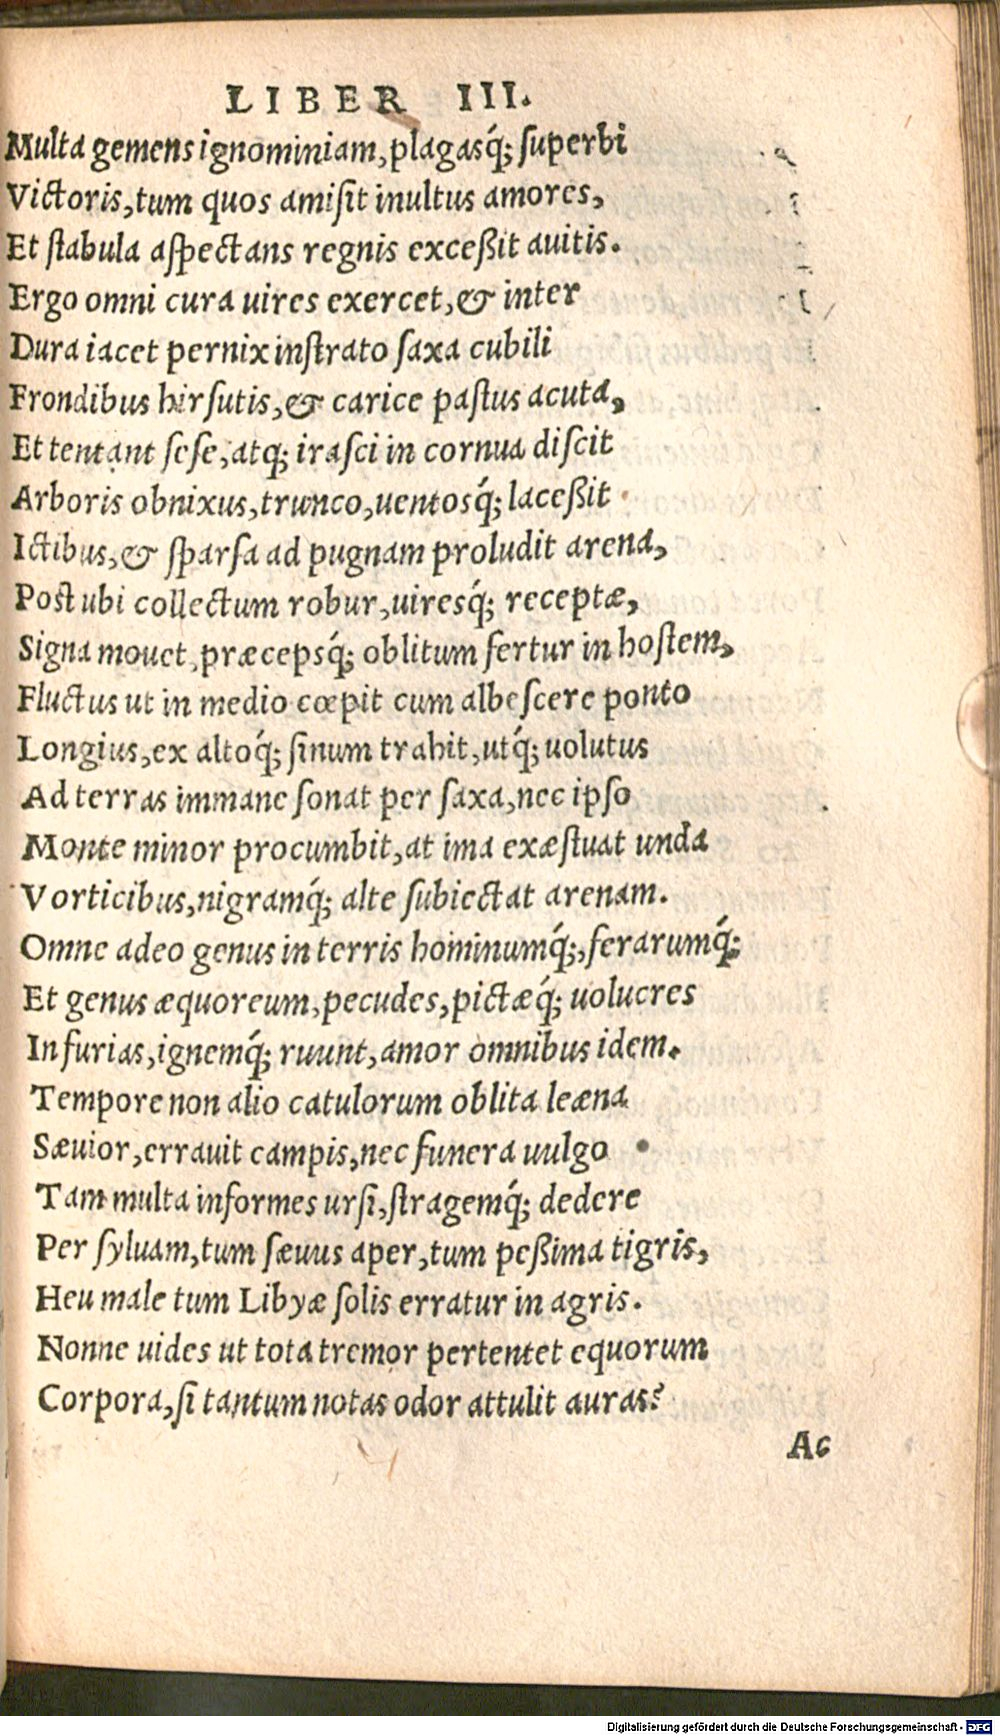 LIBER III.
Multa gemens ignominiam, plagasq́; ſuperbi
Victoris, tum quos amiſit inultus amores,
Et ſtabula aſpectans regnis exceßit auitis.
Ergo omni cura uires exercet, & inter
Dura iacet pernix inſtrato ſaxa cubili
Frondibus hirſutis, & carice paſtus acuta,
Et tentant ſeſe, atq; iraſci in cornua diſcit
Arboris obnixus, trunco, uentosq́; laceßit
Ictibus, & ſparſa ad pugnam proludit arena,
Poſt ubi collectum robur, uiresq́; receptæ,
Signa mouet, præcepsq́; oblitum fertur in hoſtem,
Fluctus ut in medio cœpit cum albeſcere ponto
Longius, ex altoq́; ſinum trahit, utq́; uolutus
Ad terras immane ſonat per ſaxa, nec ipſo
Monte minor procumbit, at ima exæſtuat unda
Vorticibus, nigramq́; alte ſubiectat arenam.
Omne adeo genus in terris hominumq́;, ferarumq́;
Et genus æquoreum, pecudes, pictæq́; uolucres
In furias, ignemq́; ruunt, amor omnibus idem.
Tempore non alio catulorum oblita leæna
Sæuior, errauit campis, nec funera uulgo
Tam multa informes urſi, ſtragemq́; dedere
Per ſyluam, tum ſæuus aper, tum peßima tigris,
Heu male tum Libyæ ſolis erratur in agris.
Nonne uides ut tota tremor pertentet equorum
Corpora, ſi tantum notas odor attulit auras?
Ac
Digitalisierung gefördert durch die Deutsche Forschungsgemeinschaft - DFG